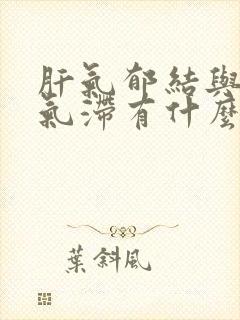 肝氣郁結與
氣滯有什麼
葉斜風